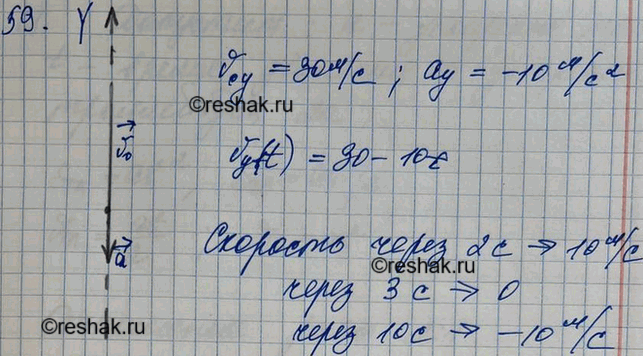 59. Y
v₀y = 30 м/с ; ay = -10 м/с²
©reshak.ru
v₀
vy(t) = 30 - 10t
a
Скорость через 2с → 10 м/с
©reshak.ru
через 3 с → 0
©reshak.ru
через 10с → -10 м/с